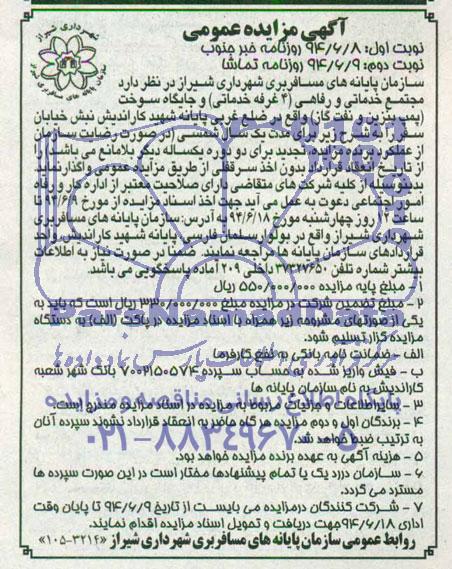 آگهی مزایده عمومی
شهرداری شیراز
سازمان پایانه های مسافربری شیراز
نوبت اول: ۹۴/۶/۸ روزنامه خبر جنوب
نوبت دوم: ۹۴/۶/۹ روزنامه تماشا
سازمان پایانه های مسافربری شهرداری شیراز در نظر دارد
مجتمع خدماتی و رفاهی (۴ غرفه خدماتی) و جایگاه سوخت
(پمپ بنزین و نفت گاز) واقع در ضلع غربی پایانه شهید کاراندیش نبش خیابان
سفیر را به شرح زیر برای مدت یک سال شمسی (در صورت رضایت سازمان
از عملکرد برنده مزایده، تجدید برای دو دوره یکساله دیگر بلامانع می باشد) از
تاریخ انعقاد قرارداد بدون اخذ سرقفلی از طریق مزایده عمومی واگذار نماید.
بدینوسیله از کلیه شرکت های متقاضی دارای صلاحیت معتبر از اداره کار و رفاه
امور اجتماعی دعوت به عمل می آید جهت اخذ اسناد مزایده از مورخ ۹۴/۶/۹ تا
ساعت ۱۲ روز چهارشنبه مورخ ۹۴/۶/۱۸ به آدرس: سازمان پایانه های مسافربری
شهرداری شیراز واقع در بولوار سلمان فارسی پایانه شهید کاراندیش واحد
قراردادهای سازمان پایانه ها مراجعه نمایند. ضمنا در صورت نیاز به اطلاعات
بیشتر شماره تلفن ۳۷۳۲۷۶۵۰ داخلی ۲۰۹ آماده پاسخگویی می باشد.
۱ - مبلغ پایه مزایده ۵۵۰/۰۰۰/۰۰۰ ریال
۲ - مبلغ تضمین شرکت در مزایده مبلغ ۳۳۰/۰۰۰/۰۰۰ ریال است که باید به
یکی از صورتهای مشروحه زیر همراه با اسناد مزایده در پاکت (الف) به دستگاه
مزایده گزار تسلیم شود.
الف - ضمانت نامه بانکی به نفع کارفرما
ب - فیش واریز شده به حساب سپرده ۷۰۰۲۱۵۰۵۷۴ بانک شهر شعبه
کاراندیش به نام سازمان پایانه ها
۳ - سایر اطلاعات و جزئیات مربوط به مزایده در اسناد مزایده مندرج است.
۴ - برندگان اول و دوم مزایده هر گاه حاضر به انعقاد قرارداد نشوند سپرده آنان
به ترتیب ضبط خواهد شد.
۵ - هزینه آگهی به عهده برنده مزایده خواهد بود.
۶ - سازمان در رد یک یا تمام پیشنهادها مختار است در این صورت سپرده ها
مسترد می گردد.
۷ - شرکت کنندگان در مزایده می بایست از تاریخ ۹۴/۶/۹ تا پایان وقت
اداری ۹۴/۶/۱۸ جهت دریافت و تحویل اسناد مزایده اقدام نمایند.
روابط عمومی سازمان پایانه های مسافربری شهرداری شیراز «۳۲۱۴-۱۰۵»
ParsNamadData
پایگاه اطلاع رسانی مناقصه و مزایده
۰۲۱-۸۸۳۴۹۶۷۰-۵